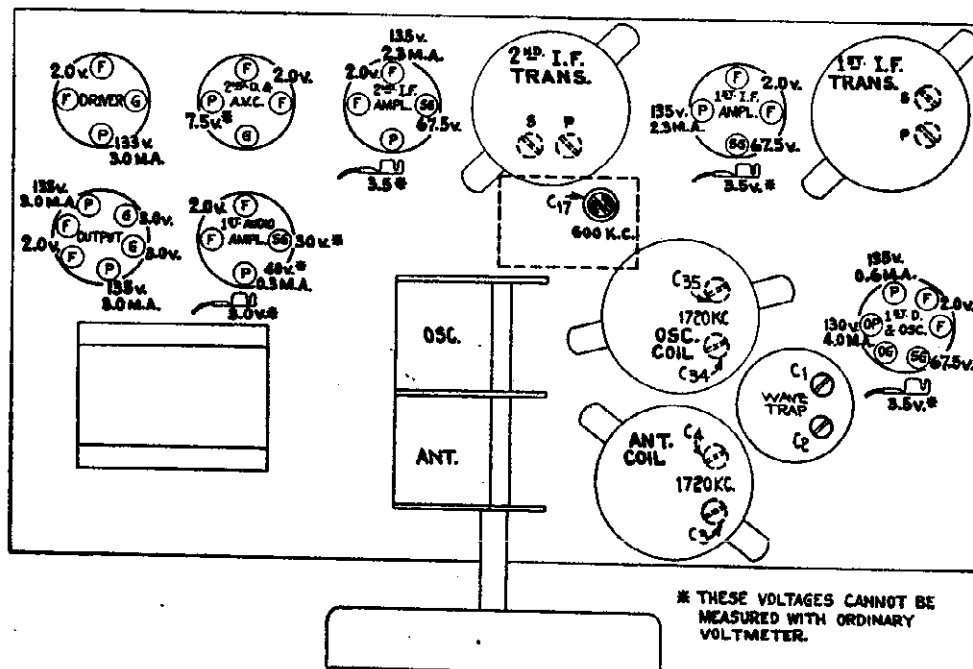 2.0v.
F
F
DRIVER
G
P
135v
3.0 M.A.
F
2.0v.
2ND D. &
A.V.C.
P
F
7.5v.*
G
135v.
2.3 M.A.
2.0v.
F
F
2ND I.F.
AMPL.
SG
67.5v.
P
3.5*
2ND. I.F.
TRANS.
S P
F
2.0v.
135v
P
1ST I.F.
AMPL.
F
2.3 M.A.
SG
67.5v.
3.5v.*
1ST. I.F.
TRANS.
S
P
135v.
3.0 M.A.
P
G
3.0v.
F
OUTPUT
2.0v.
G
3.0v.
F
P
135v.
3.0 M.A.
2.0v.
F
F
1ST. AUDIO
AMPL.
SG
30v.*
P
40v.*
0.3 M.A.
3.0v.*
C17
600 K.C.
OSC.
ANT.
C35
1720KC
OSC.
COIL
C34
135v.
0.6 M.A.
P
F
2.0v.
130v
OP
1ST. D.
& OSC.
F
4.0 M.A.
OG
SG
67.5v.
3.5v.*
C1
WAVE
TRAP
C2
ANT.
COIL
C4
1720KC.
C3
* THESE VOLTAGES CANNOT BE
MEASURED WITH ORDINARY
VOLTMETER.